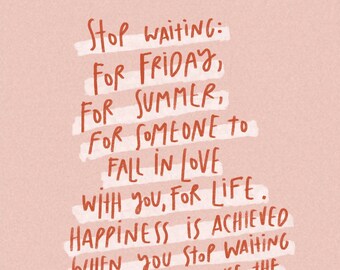 STOP WAITING:
FOR FRIDAY,
FOR SUMMER,
FOR SOMEONE TO
FALL IN LOVE
WITH YOU, FOR LIFE.
HAPPINESS IS ACHIEVED
WHEN YOU STOP WAITING
THE